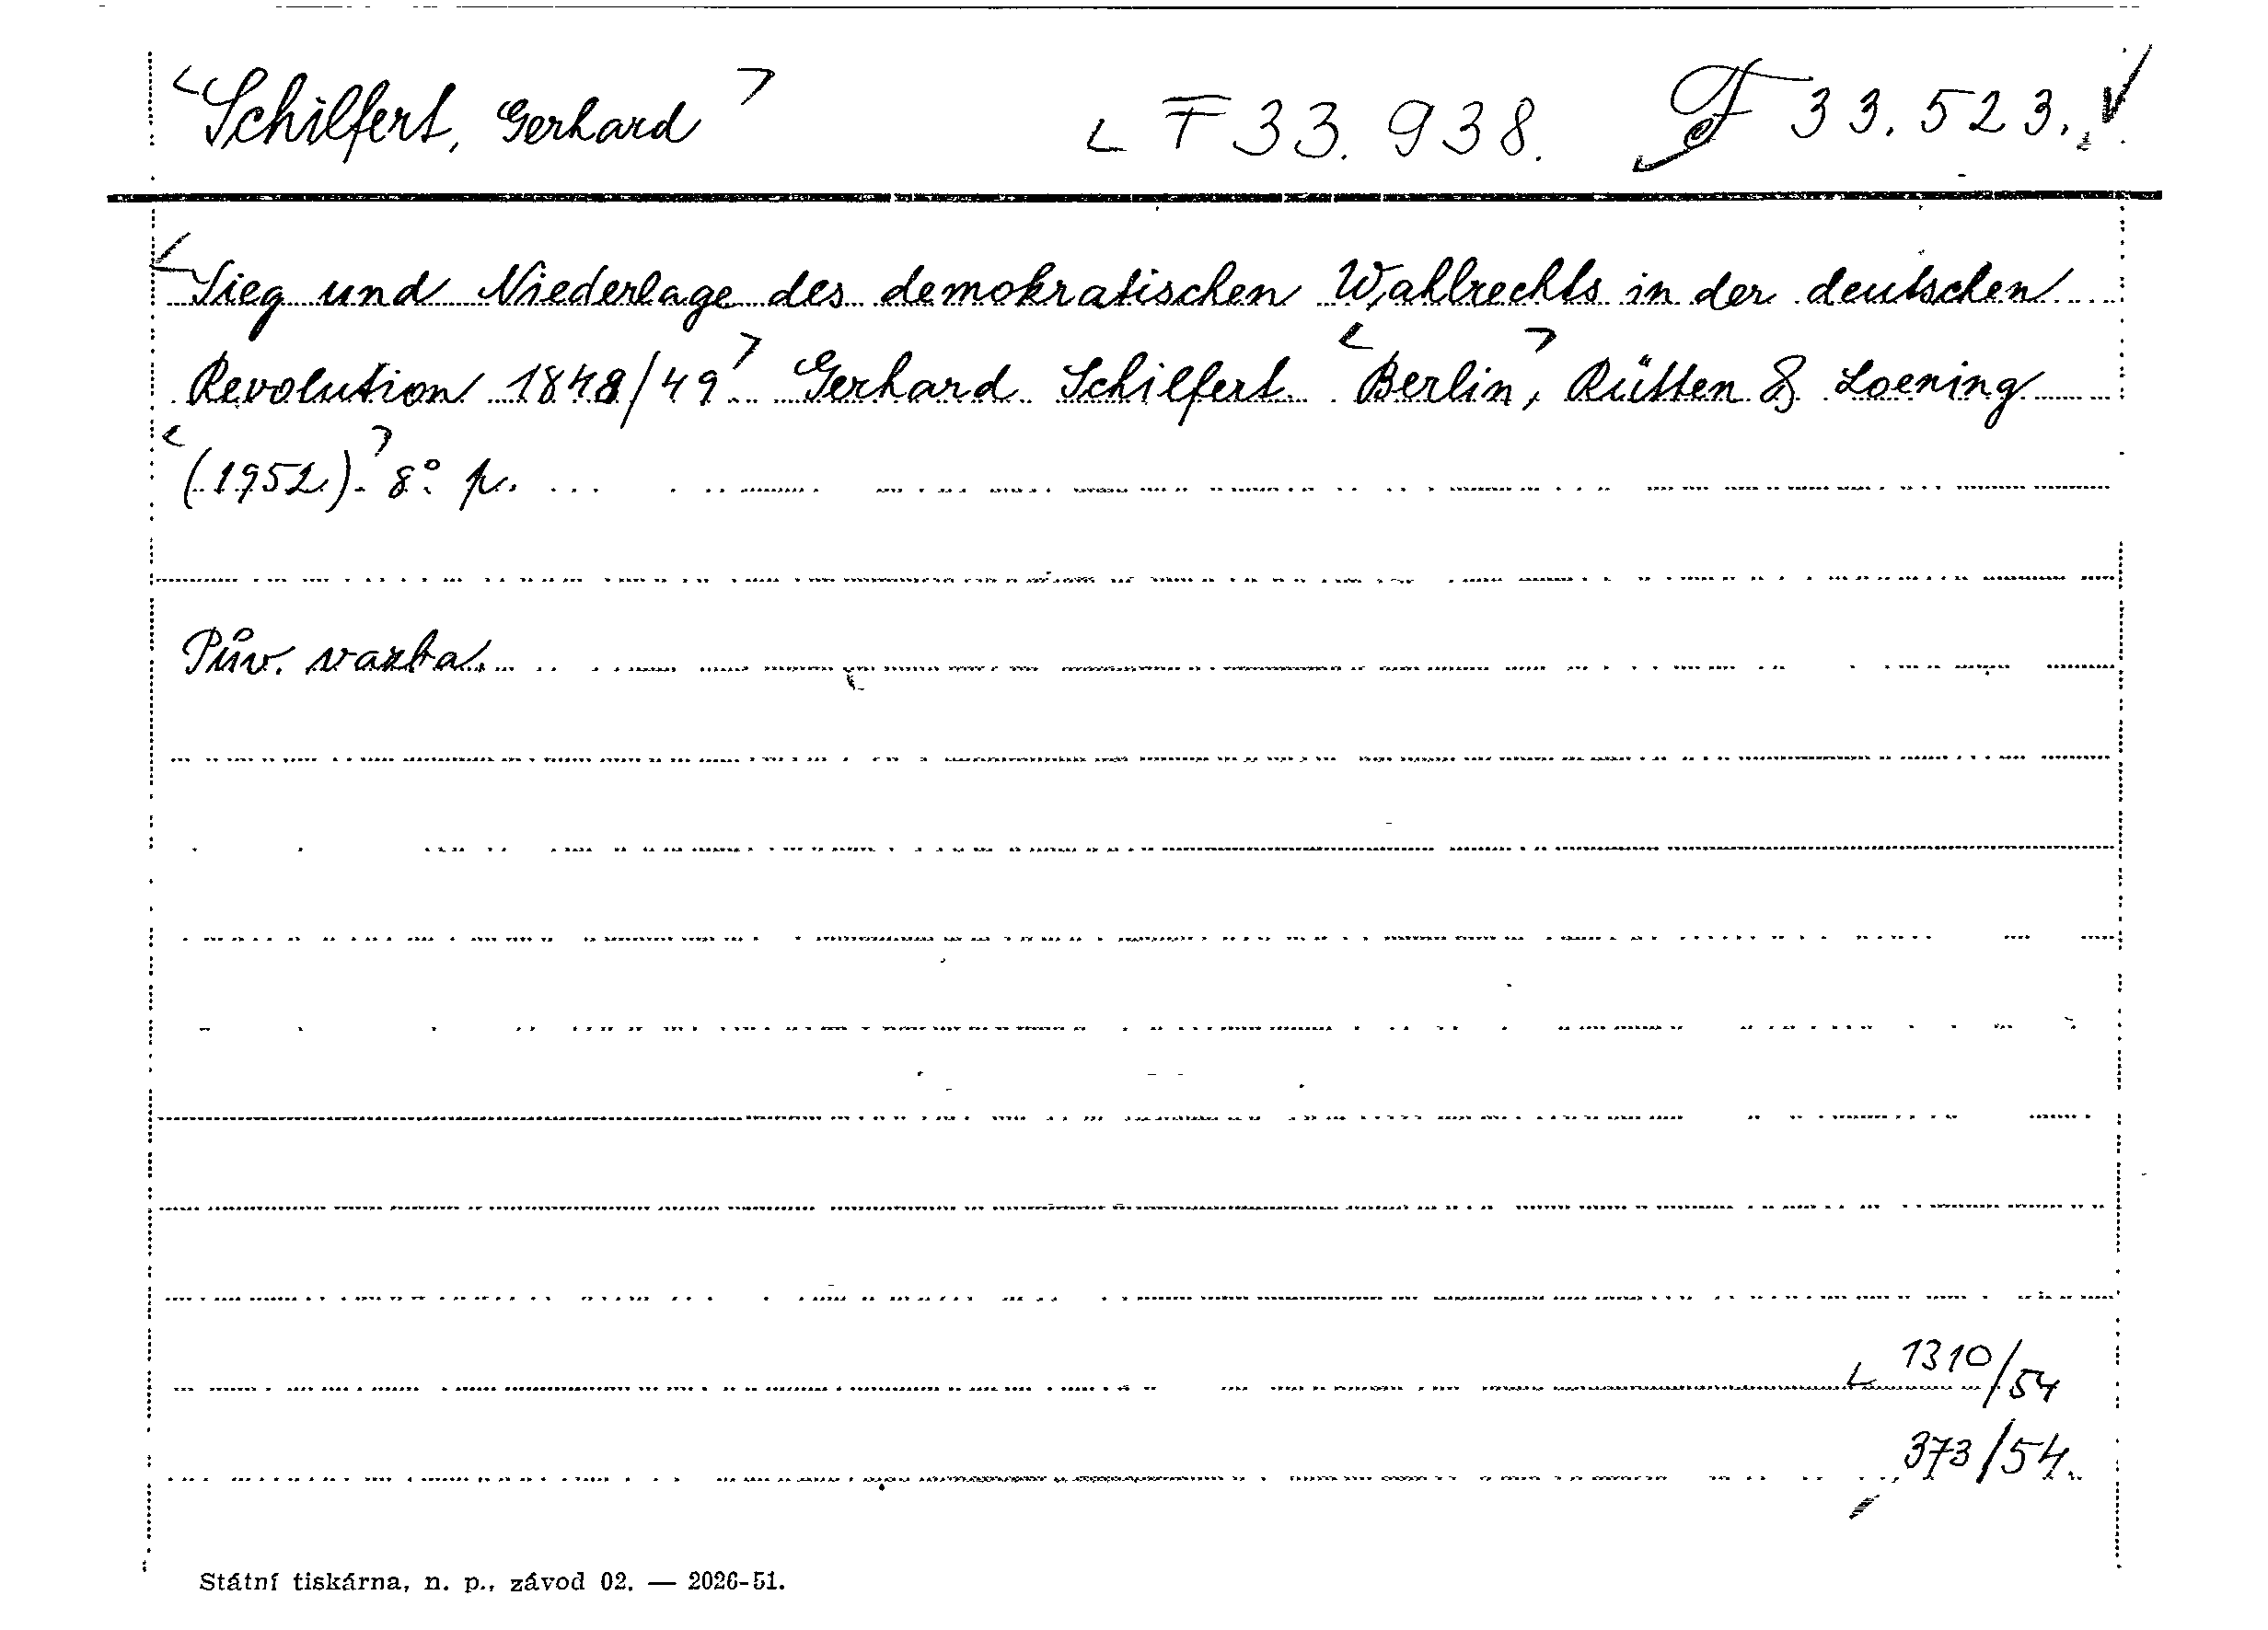 Schilfert, Gerhard F 33.938. F 33.523.
Sieg und Niederlage des demokratischen Wahlrechts in der deutschen
Revolution 1848/49. Gerhard Schilfert. Berlin, Rütten & Loening
(1952). 8° p.
Pův. vazba.
1310/54
373/54.
Státní tiskárna, n. p., závod 02. — 2026-51.